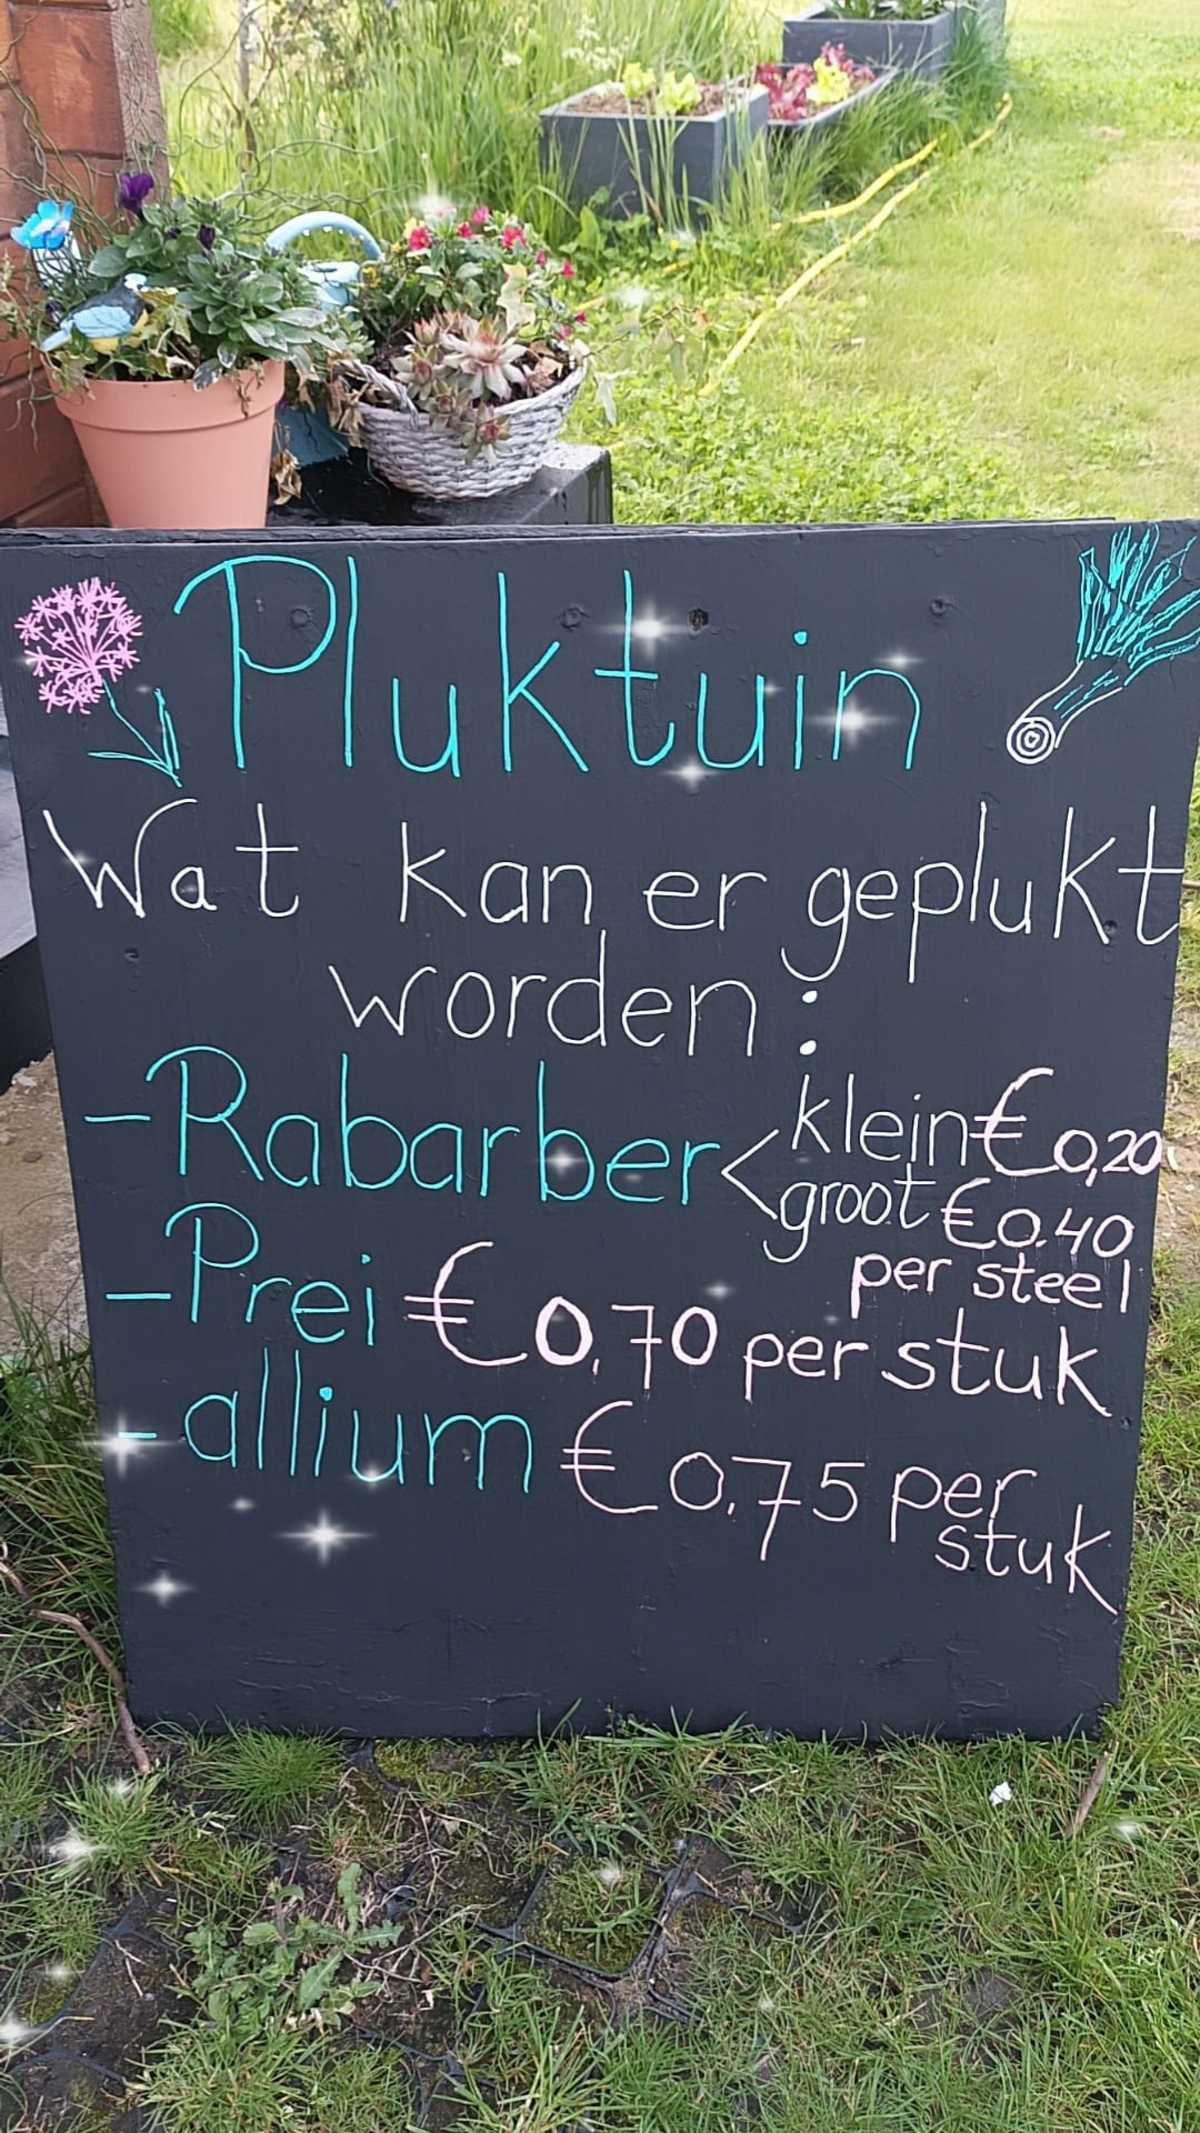 Pluktuin
Wat kan er geplukt
worden:
- Rabarber < klein € 0,20
groot € 0.40
per steel
- Prei € 0,70 per stuk
- allium € 0.75 per
stuk